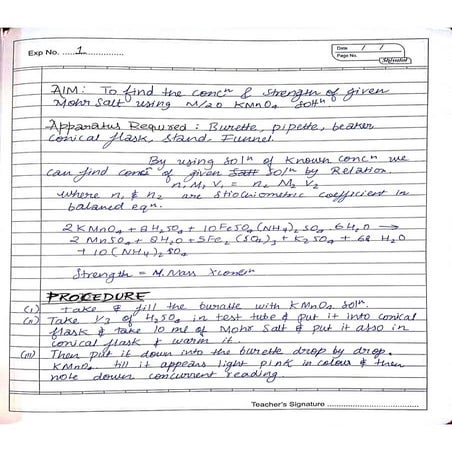 Exp No. 1
Date / /
Page No.
AIM: To find the concⁿ & strength of given
Mohr Salt using M/20 KMnO₄ solⁿ
Apparatus Required: Burette, pipette, beaker
conical flask, stand, Funnel.
By using solⁿ of Known concⁿ we
can find concⁿ of given solⁿ by Relation
n₁ M₁ V₁ = n₂ M₂ V₂
where n₁ & n₂ are stiochiometric coefficient in
balanced eqⁿ.
2 KMnO₄ + 8H₂SO₄ + 10FeSO₄(NH₄)₂SO₄. 6H₂O →
2 MnSO₄ + 5Fe₂(SO₄)₃ + K₂SO₄ + 68 H₂O
+ 10(NH₄)₂SO₄
Strength = M. Mass X concⁿ
PROCEDURE
(i) Take & fill the buratte with KMnO₄ solⁿ.
(ii) Take of H₂SO₄ in test tube & put it into conical
flask & take 10 ml of Mohr Salt & put it also in
conical flask & warm it.
(iii) Then put it down into the burette drop by drop.
KMnO₄ till it appears light pink in colour & then
note down concurrent reading.
Teacher's Signature